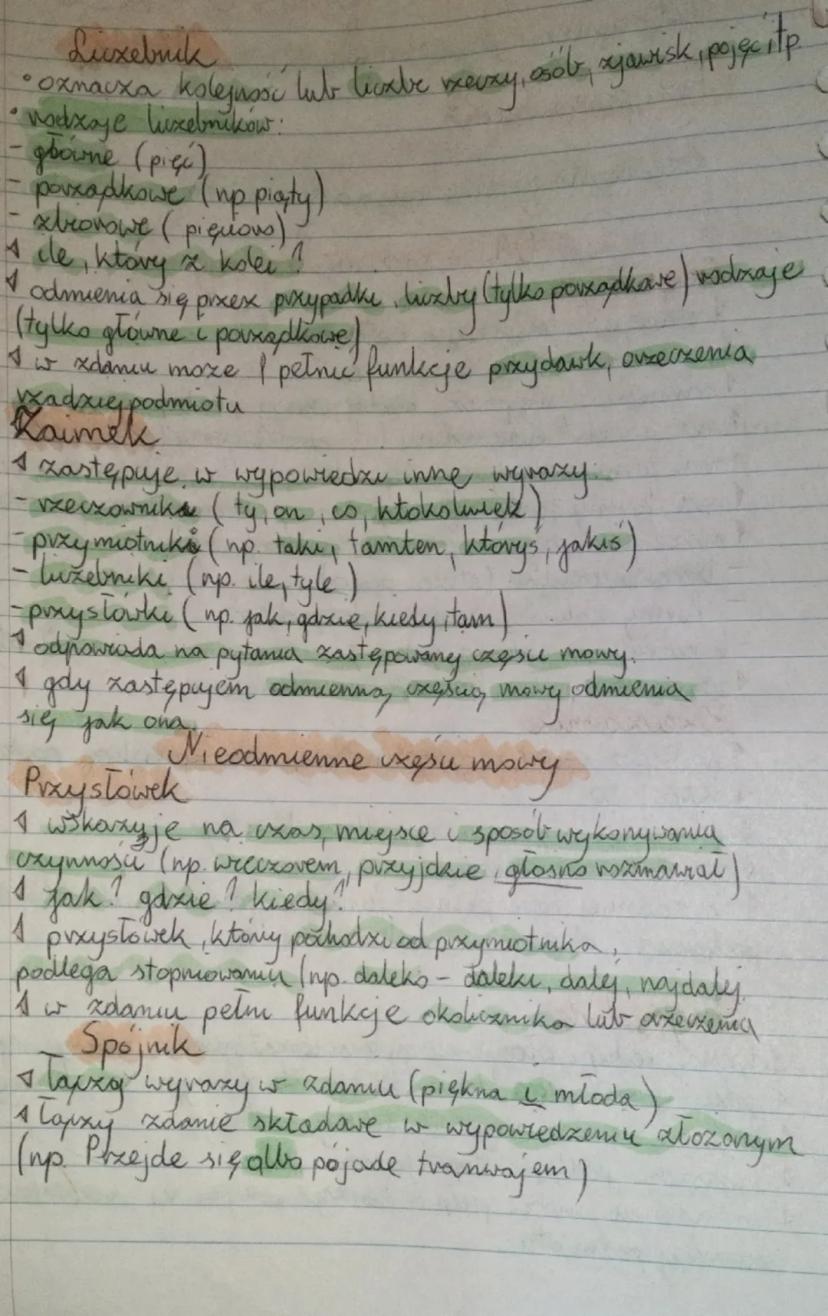 Liczebnik
• oznacza kolejność lub liczbę rzeczy, osób, zjawisk, pojęć itp
• rodzaje liczebników:
- główne (pięć)
- porządkowe (np piąty)
- zbiorowe (pięcioro)
ile, który z kolei?
odmienia się przez przypadki, liczby (tylko porządkowe) rodzaje
(tylko główne i porządkowe)
w zdaniu może pełnić funkcje przydawk, orzeczenia
rzadziej podmiotu
Zaimek
zastępuje w wypowiedzi inne wyrazy:
- rzeczowniki (ty, on, co, ktokolwiek)
- przymiotniki (np. taki, tamten, któryś, jakiś)
- liczebniki (np. ile, tyle)
- przysłówki (np. jak, gdzie, kiedy, tam)
odpowiada na pytania zastępowanej części mowy.
gdy zastępujem odmienną częścią mowy odmienia
się jak ona
Nieodmienne części mowy
Przysłówek
wskazuje na czas, miejsce i sposób wykonywania
czynności (np. wieczorem, przyjdzie, głośno rozmawiał)
Jak? gdzie? kiedy?
przysłówek, który pochodzi od przymiotnika,
podlega stopniowaniu (np. daleko - daleki, dalej, najdalej
w zdaniu pełni funkcje okolicznika lub orzeczenia
Spójnik
łączą wyrazy w zdaniu (piękna i młoda)
łączy zdanie składowe w wypowiedzeniu złożonym
(np. Przejde się albo pójade tramwajem)